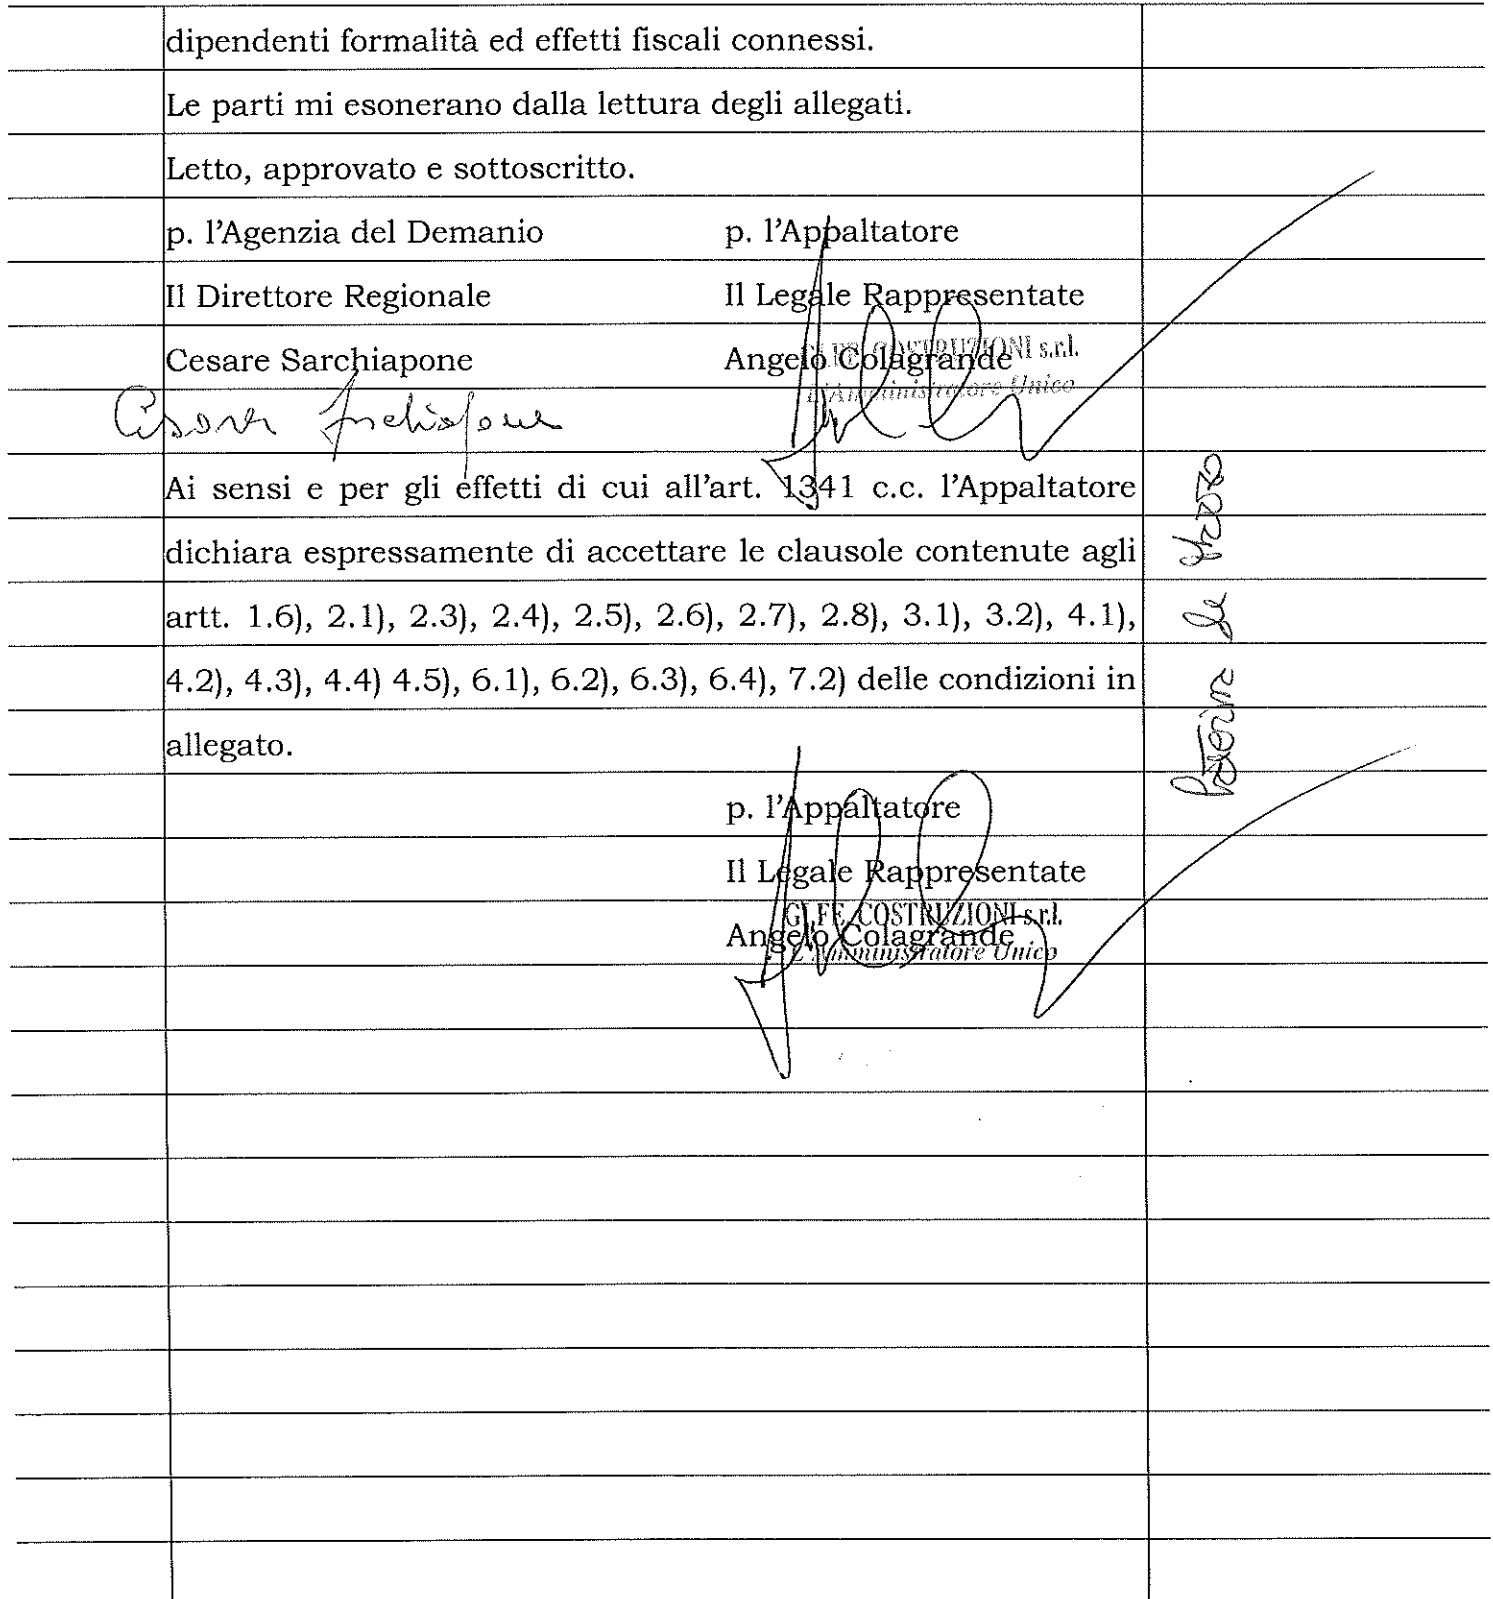 dipendenti formalità ed effetti fiscali connessi.
Le parti mi esonerano dalla lettura degli allegati.
Letto, approvato e sottoscritto.
p. l'Agenzia del Demanio p. l'Appaltatore
Il Direttore Regionale Il Legale Rappresentate
Cesare Sarchiapone Angelo Colagrande
COSTRUZIONI s.r.l.
L'Amministratore Unico
Ai sensi e per gli effetti di cui all'art. 1341 c.c. l'Appaltatore
dichiara espressamente di accettare le clausole contenute agli
artt. 1.6), 2.1), 2.3), 2.4), 2.5), 2.6), 2.7), 2.8), 3.1), 3.2), 4.1),
4.2), 4.3), 4.4) 4.5), 6.1), 6.2), 6.3), 6.4), 7.2) delle condizioni in
allegato.
p. l'Appaltatore
Il Legale Rappresentate
COSTRUZIONI s.r.l.
Angelo Colagrande
L'Amministratore Unico